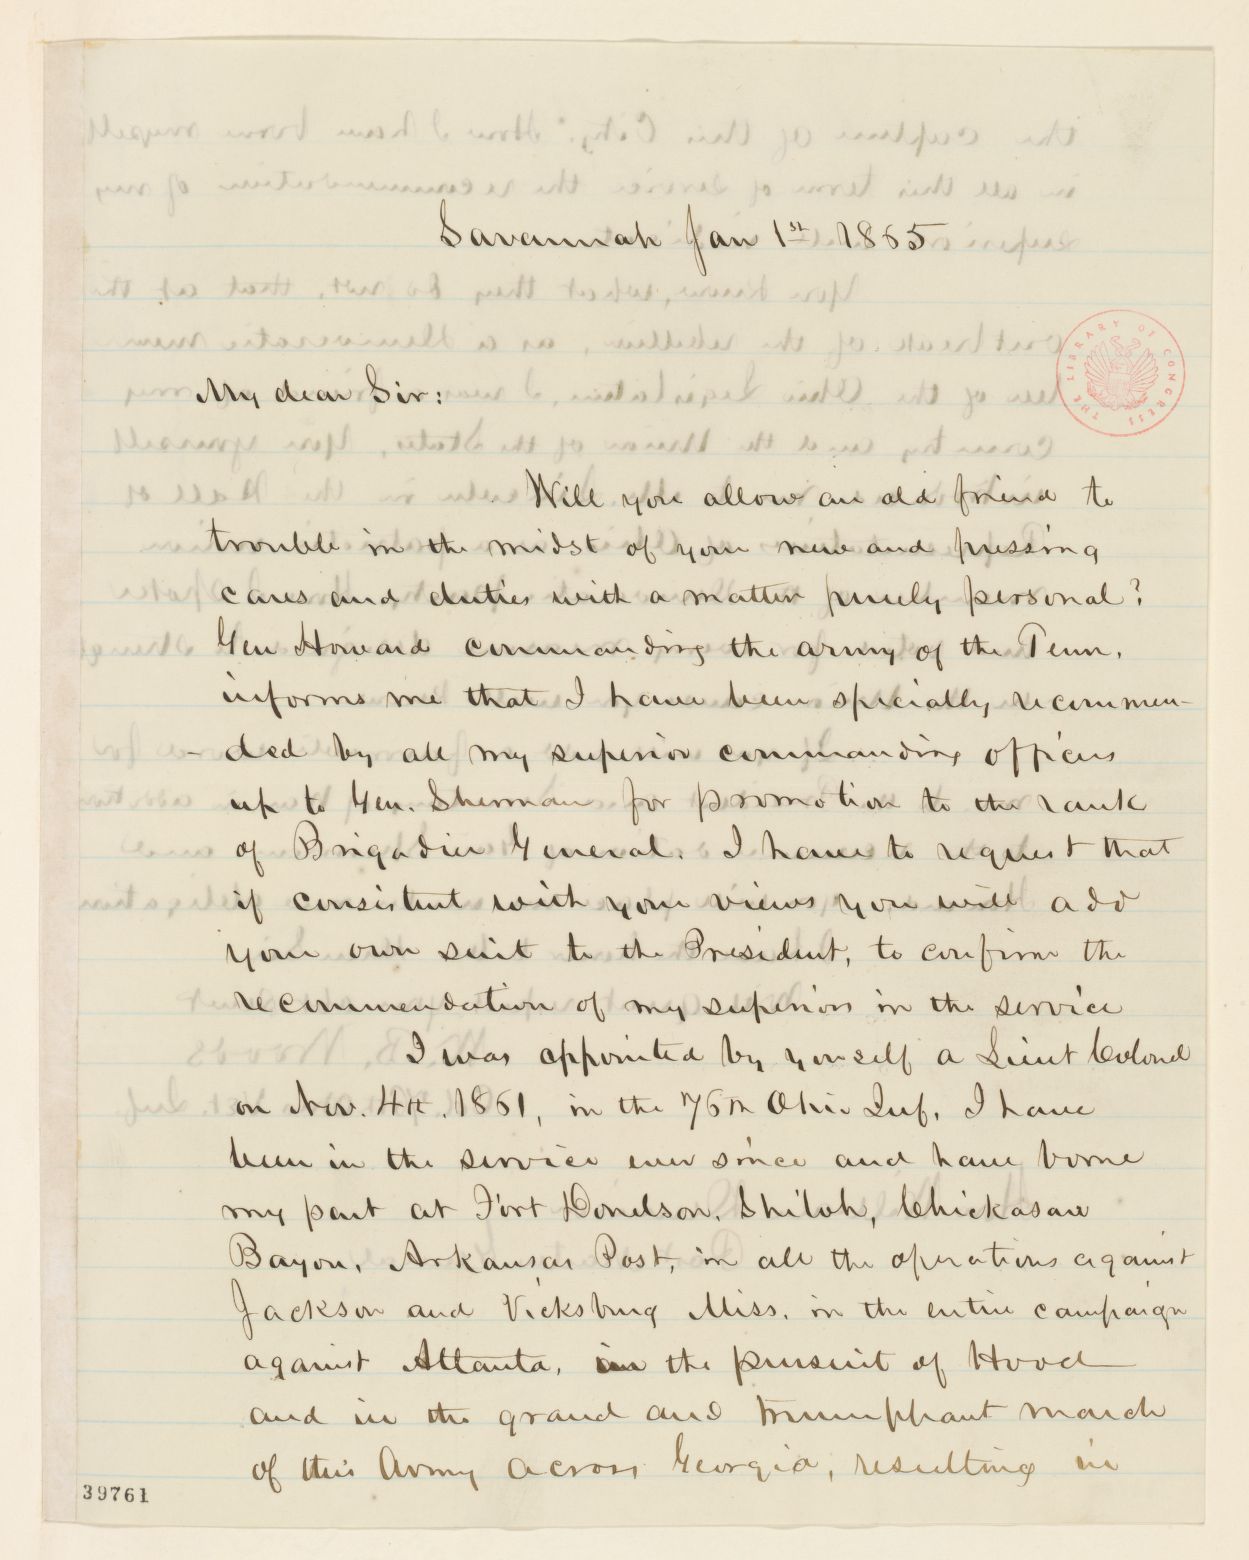 Savannah Jan 1st 1865
My dear Sir:
Will you allow an old friend to
trouble in the midst of your new and pressing
cares and duties with a matter purely personal?
Gen Howard commanding the army of the Tenn.
informs me that I have been specially recommen-
-ded by all my superior commanding officers
up to Gen. Sherman for promotion to the rank
of Brigadier General. I have to request that
if consistent with your views you will add
your own suit to the President, to confirm the
recommendation of my superiors in the service
I was appointed by yourself a Lieut Colonel
on Nov. 4th. 1861, in the 76th Ohio Inf. I have
been in the service ever since and have borne
my part at Fort Donelson, Shiloh, Chickasaw
Bayou, Arkansas Post, in all the operations against
Jackson and Vicksburg Miss. in the entire campaign
against Atlanta, in the pursuit of Hood
and in the grand and triumphant march
of this Army across Georgia, resulting in
39761
THE LIBRARY OF CONGRESS